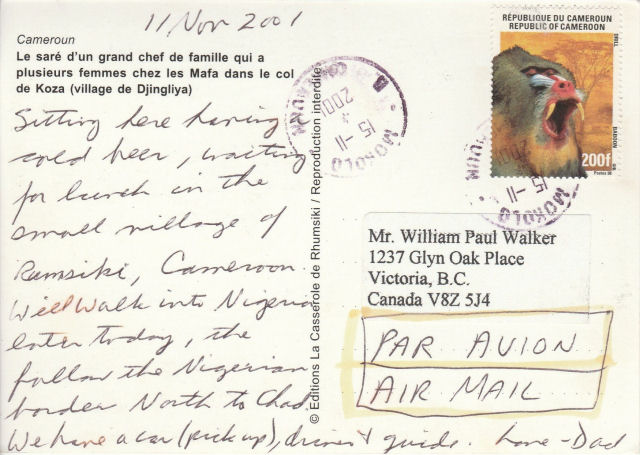 11 Nov 2001
Cameroun
Le saré d'un grand chef de famille qui a
plusieurs femmes chez les Mafa dans le col
de Koza (village de Djingliya)
Sitting here having
cold beer, waiting
for lunch in the
small village of
Ramsiki, Cameroon.
Will walk into Nigeria
later today, the
follow the Nigerian
border North to Chad.
We have a car (pick up), driver & guide. Love - Dad
© Editions La Casserole de Rhumsiki / Reproduction interdite
RÉPUBLIQUE DU CAMEROUN
REPUBLIC OF CAMEROON
DRILL
BABOON
200f
MOKOLO
15-11
2001
MOKOLO
15-11
Mr. William Paul Walker
1237 Glyn Oak Place
Victoria, B.C.
Canada V8Z 5J4
PAR AVION
AIR MAIL